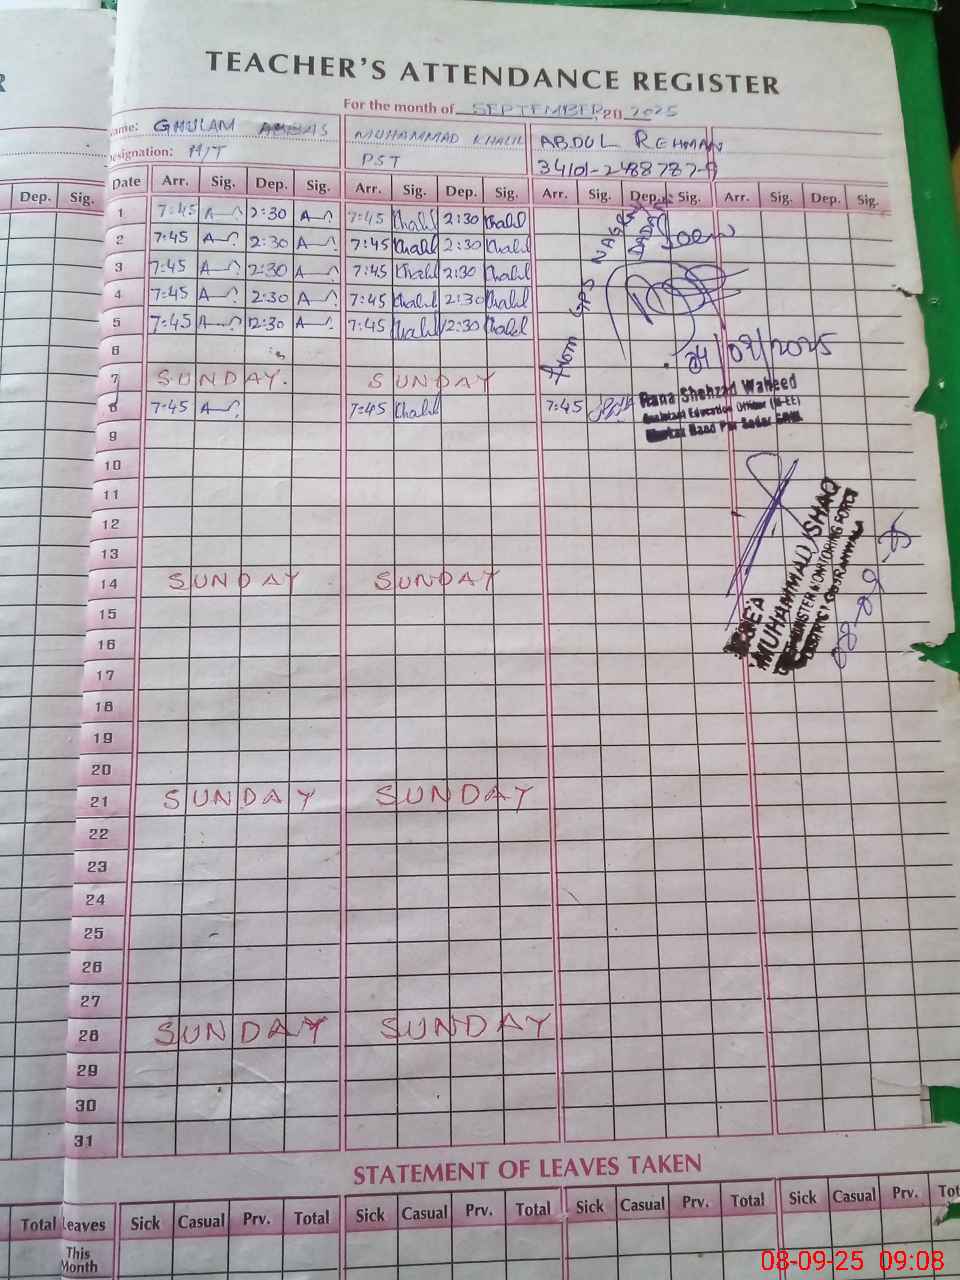 R
TEACHER'S ATTENDANCE REGISTER
For the month of SEPTEMBER 20 2025
ame: GHULAM ABBAS MUHAMMAD KHALIL ABDUL REHMAN
esignation: M/T PST 34101-2488787-9
Dep. Sig. Date Arr. Sig. Dep. Sig. Arr. Sig. Dep. Sig. Arr. Sig. Dep. Sig. Arr. Sig. Dep. Sig.
1 7:45 2:30 7:45 Khalil 2:30 Khalil
2 7:45 2:30 7:45 Khalil 2:30 Khalil
3 7:45 2:30 7:45 Khalil 2:30 Khalil
4 7:45 2:30 7:45 Khalil 2:30 Khalil
5 7:45 12:30 7:45 Khalil 12:30 Khalil
from GPS
6
04/09/2025
7 SUNDAY. SUNDAY
Rana Shehzad Waheed
Assistant Education Officer (M-EE)
8 7:45 7:45 Khalil 7:45
9
10
11
12
13
14 SUNDAY SUNDAY
MUHAMMAD ISHAQ
MONITORING FORCE
DISTRICT GUJRANWALA
08-09-25
15
16
17
18
19
20
21 SUNDAY SUNDAY
22
23
24
25
26
27
28 SUNDAY SUNDAY
29
30
31
STATEMENT OF LEAVES TAKEN
Total Leaves Sick Casual Prv. Total Sick Casual Prv. Total Sick Casual Prv. Total Sick Casual Prv. Tot
This
Month
08-09-25 09:08